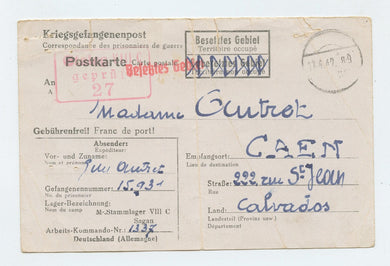 Kriegsgefangenenpost
Correspondance des prisonniers de guerre
Besetztes Gebiet
Territoire occupé
Postkarte Carte postale
Besetztes Gebiet
geprüft
27
An
A
Madame Autret
Gebührenfrei! Franc de port!
Absender:
Expéditeur:
Vor- und Zuname:
Nom et prénom
Autret
Gefangenennummer:
No. du prisonnier
Lager-Bezeichnung:
Nom du camp
M.-Stammlager VIII C
Sagan
Arbeits-Kommando-Nr.: 1337
Deutschland (Allemagne)
Empfangsort: CAEN
Lieu de destination
Straße: 222 rue St Jean
Rue
Land: Calvados
Landesteil (Provinz usw.)
Département